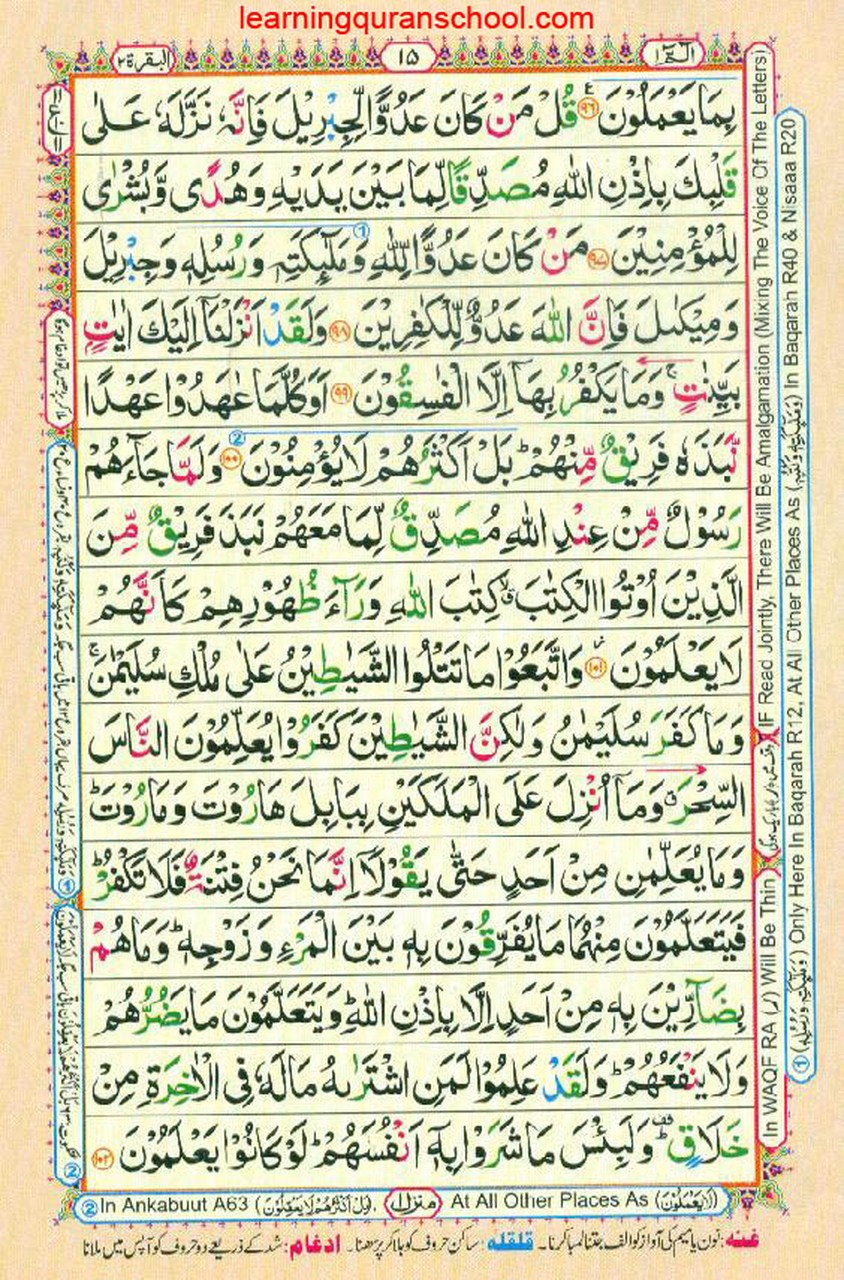 learningquranschool.com
الٓمّٓ ١
١٥
البقرة ٢
بِمَا يَعْمَلُوْنَ ۝٩٦ قُلْ مَنْ كَانَ عَدُوًّا لِّجِبْرِيْلَ فَاِنَّهٗ نَزَّلَهٗ عَلٰى
قَلْبِكَ بِاِذْنِ اللّٰهِ مُصَدِّقًا لِّمَا بَيْنَ يَدَيْهِ وَهُدًى وَّبُشْرٰى
لِلْمُؤْمِنِيْنَ ۝٩٧ مَنْ كَانَ عَدُوًّا لِّلّٰهِ وَمَلٰٓئِكَتِهٖ وَرُسُلِهٖ وَجِبْرِيْلَ
وَمِيْكٰىلَ فَاِنَّ اللّٰهَ عَدُوٌّ لِّلْكٰفِرِيْنَ ۝٩٨ وَلَقَدْ اَنْزَلْنَاۤ اِلَيْكَ اٰيٰتٍۭ
بَيِّنٰتٍ ۚ وَمَا يَكْفُرُ بِهَاۤ اِلَّا الْفٰسِقُوْنَ ۝٩٩ اَوَكُلَّمَا عٰهَدُوْا عَهْدًا
نَّبَذَهٗ فَرِيْقٌ مِّنْهُمْ ؕ بَلْ اَكْثَرُهُمْ لَا يُؤْمِنُوْنَ ۝١٠٠ وَلَمَّا جَآءَهُمْ
رَسُوْلٌ مِّنْ عِنْدِ اللّٰهِ مُصَدِّقٌ لِّمَا مَعَهُمْ نَبَذَ فَرِيْقٌ مِّنَ
الَّذِيْنَ اُوْتُوا الْكِتٰبَ ۙ كِتٰبَ اللّٰهِ وَرَآءَ ظُهُوْرِهِمْ كَاَنَّهُمْ
لَا يَعْلَمُوْنَ ۝١٠١ وَاتَّبَعُوْا مَا تَتْلُوا الشَّيٰطِيْنُ عَلٰى مُلْكِ سُلَيْمٰنَ ۚ
وَمَا كَفَرَ سُلَيْمٰنُ وَلٰكِنَّ الشَّيٰطِيْنَ كَفَرُوْا يُعَلِّمُوْنَ النَّاسَ
السِّحْرَ ۗ وَمَاۤ اُنْزِلَ عَلَى الْمَلَكَيْنِ بِبَابِلَ هَارُوْتَ وَمَارُوْتَ ؕ
وَمَا يُعَلِّمٰنِ مِنْ اَحَدٍ حَتّٰى يَقُوْلَاۤ اِنَّمَا نَحْنُ فِتْنَةٌ فَلَا تَكْفُرْ ؕ
فَيَتَعَلَّمُوْنَ مِنْهُمَا مَا يُفَرِّقُوْنَ بِهٖ بَيْنَ الْمَرْءِ وَزَوْجِهٖ ؕ وَمَا هُمْ
بِضَآرِّيْنَ بِهٖ مِنْ اَحَدٍ اِلَّا بِاِذْنِ اللّٰهِ ؕ وَيَتَعَلَّمُوْنَ مَا يَضُرُّهُمْ
وَلَا يَنْفَعُهُمْ ؕ وَلَقَدْ عَلِمُوْا لَمَنِ اشْتَرٰىهُ مَا لَهٗ فِى الْاٰخِرَةِ مِنْ
خَلَاقٍ ؕ وَلَبِئْسَ مَا شَرَوْا بِهٖۤ اَنْفُسَهُمْ ؕ لَوْ كَانُوْا يَعْلَمُوْنَ ۝١٠٢
In WAQF RA (ر) Will Be Thin
IF Read Jointly, There Will Be Amalgamation (Mixing The Voice Of The Letters)
① (وَمَلٰٓئِكَتِهٖ وَرُسُلِهٖ) Only Here In Baqarah R12, At All Other Places As (وَمَلٰٓئِكَتِهٖ وَكُتُبِهٖ) In Baqarah R40 & Nisaaa R20
② In Ankabuut A63 (بَلْ اَكْثَرُهُمْ لَا يَعْقِلُوْنَ), منزل ١ At All Other Places As (لَا يَعْلَمُوْنَ)
غنه: نون یا میم کی آواز کو الف جتنا لمبا کرنا۔ قلقله: ساکن حروف کو ہلا کر پڑھنا۔ ادغام: شد کے ذریعے دو حروف کو آپس میں ملانا